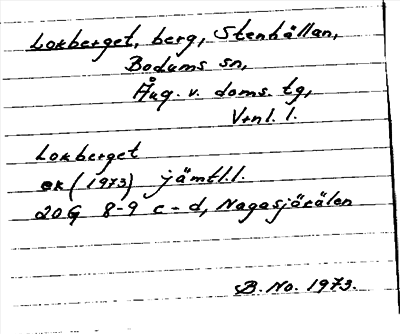 Lokberget, berg, Stenhållan,
Bodums sn,
Ång. v. doms. tg,
Vrnl. l.
Lokberget
ek (1973) jämtl.l.
20G 8-9 c-d, Nagasjökälen
B. No. 1973.